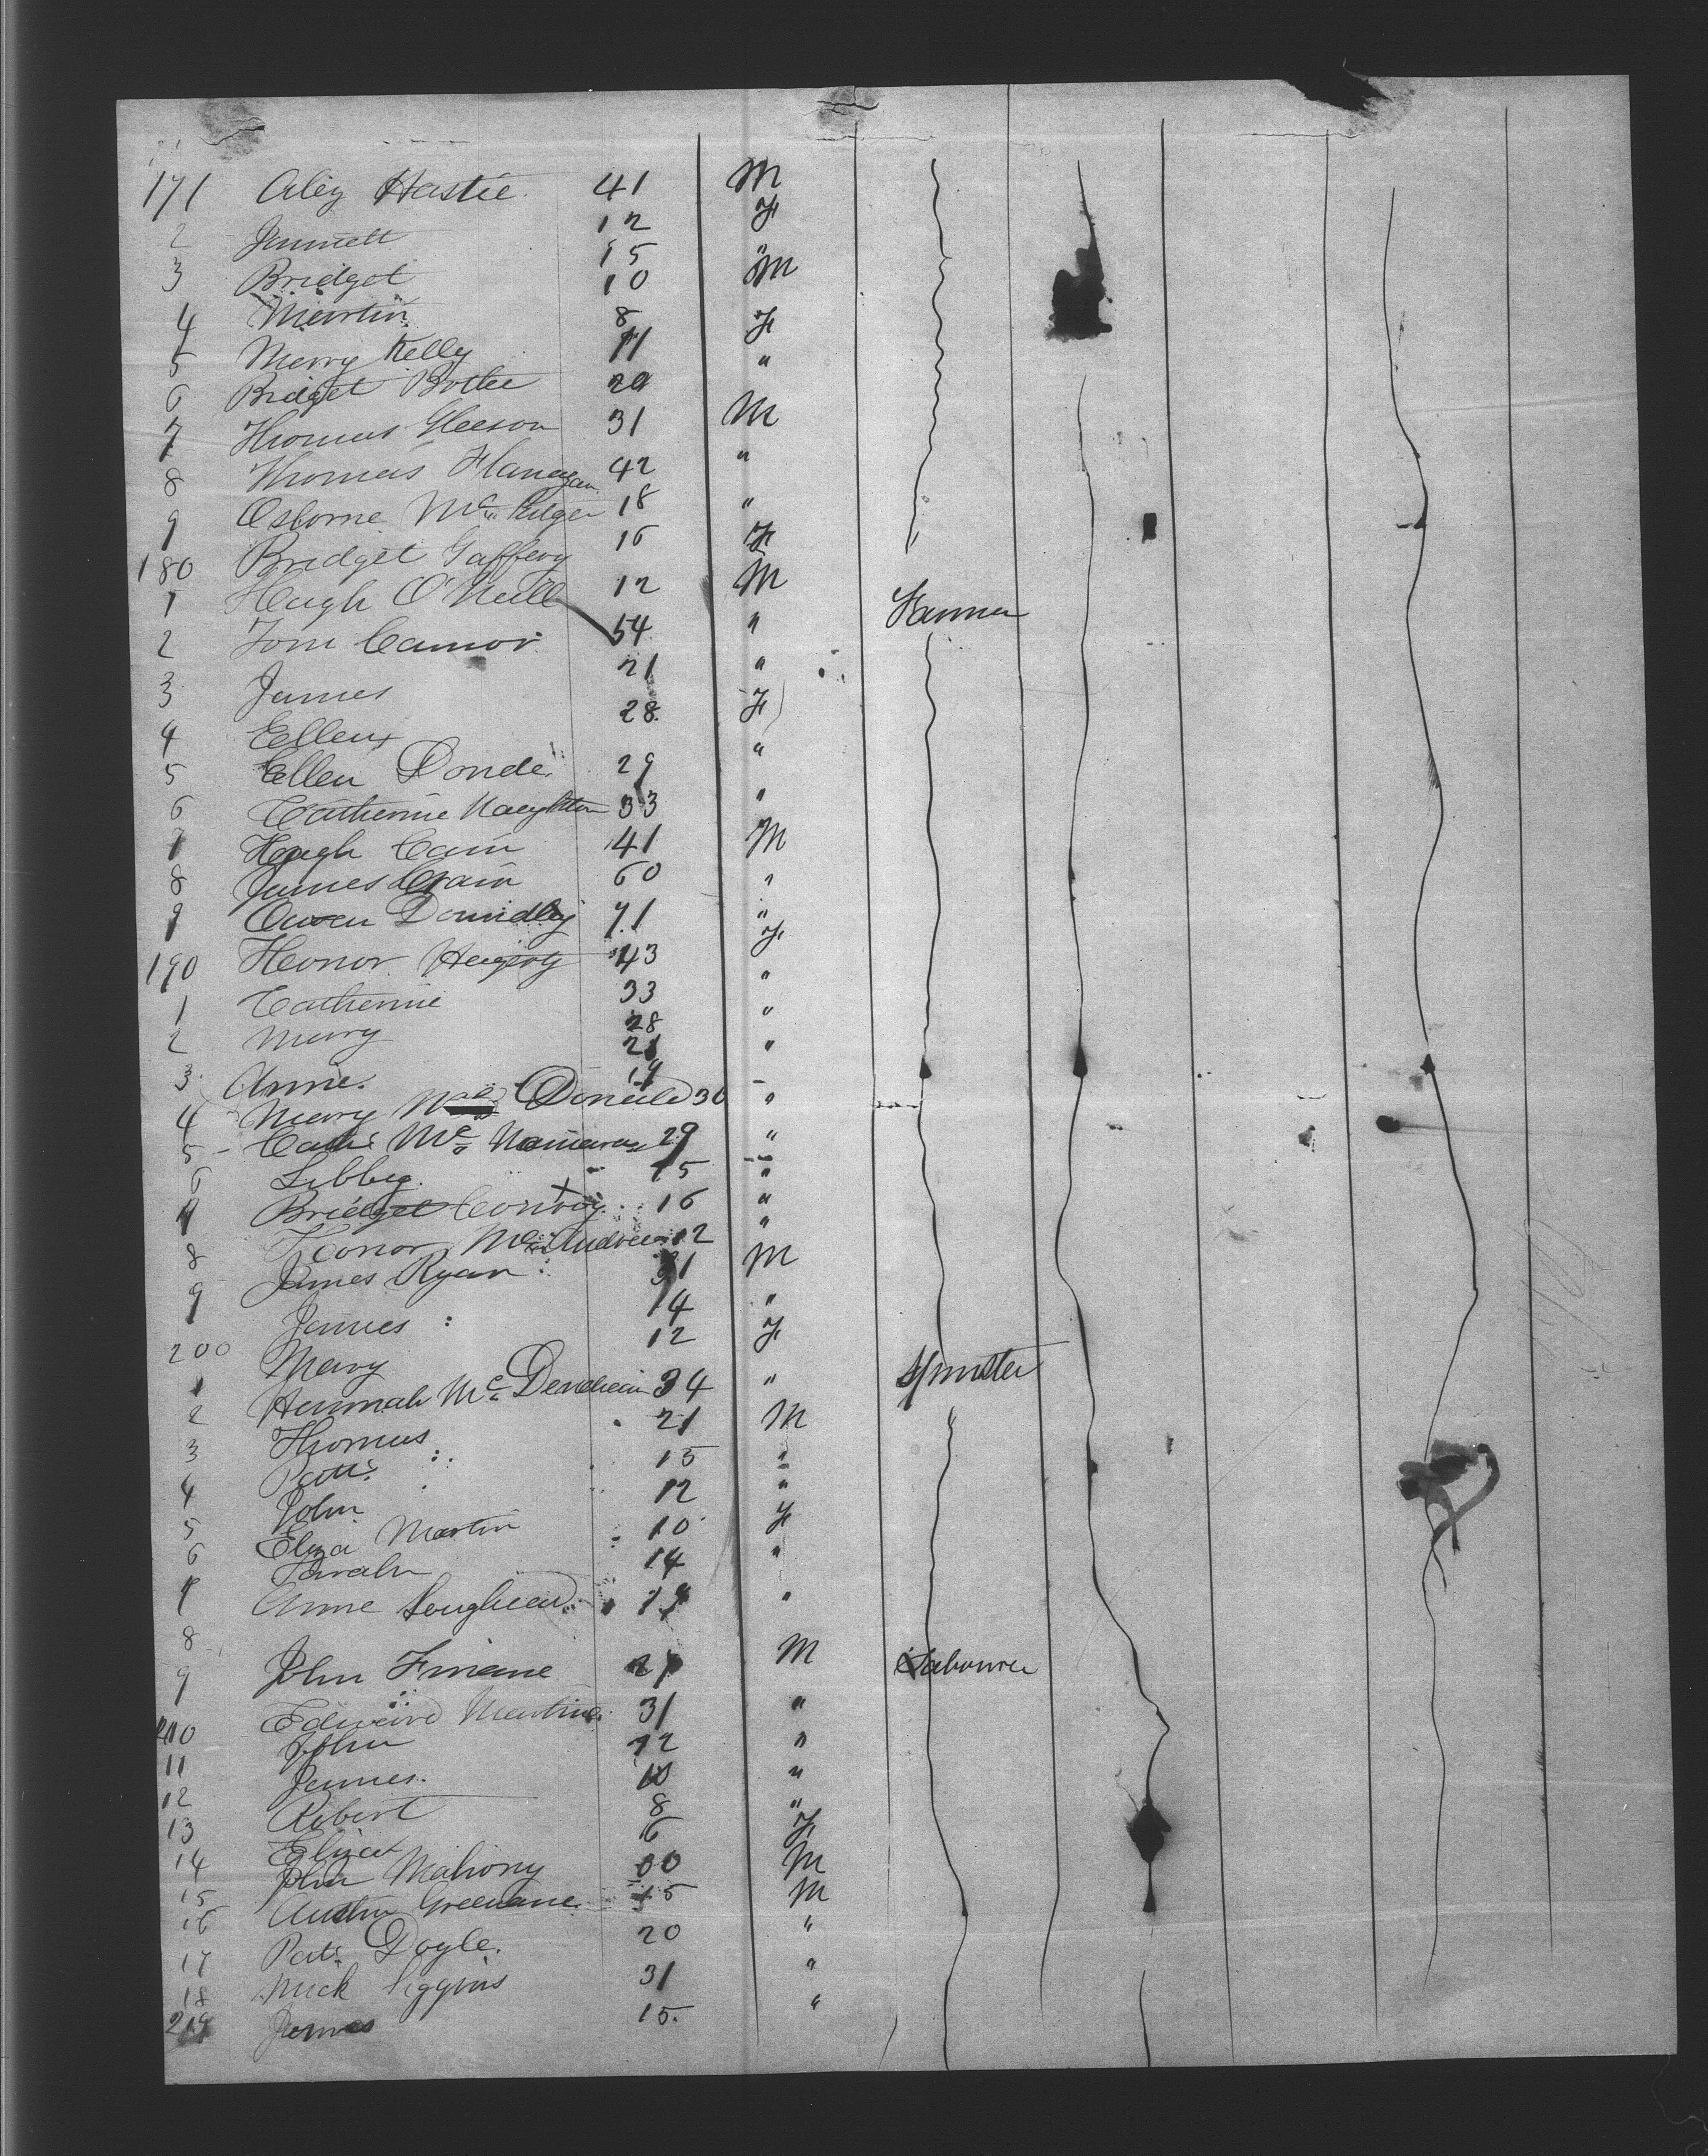 171 Alex Hastie. 41 M
2 Jannett 12 F
3 Bridget 15 "
4 Martin 10 M
5 Mary Kelly 8 F
6 Bridget 11 "
7 Thomas Gleeson 31 M
8 Thomas Flanagan 42 "
9 Osborne Mc 18 "
180 Bridget Gaffery 16 F
1 Hugh O'Neill 12 M
2 Tom Connor 54 " Farmer
3 James 21 "
4 Eellen 28 F
5 Ellen 29 "
6 Catherine Naughton 33 "
7 Hugh Cain 41 M
8 James Crain 60 "
9 Owen 71 "
190 Honor Hegerty 43 F
1 Catherine 33 "
2 Mary 28 "
3 Annie. 21 "
4 Mary Donald 30 "
5 Cath: Mc Namara 29 "
6 Libby. 15 "
7 Bridget Conroy 16 "
8 Honor Mc Andrew 12 "
9 James Ryan 31 M
James 14 "
200 Mary 12 F
1 Hannah Mc 34 " Spinster
2 Thomas 21 M
3 Patt: 15 "
4 John 12 "
5 Eliza Martin 10 F
6 Sarah 14 "
7 Anne "
8
9 John Finane M Labourer
210 Edward Martin 31 "
11 John 12 "
12 James. 10 "
13 Robert 8 "
14 Eliza 6 F
15 John Mahony M
16 Austin 15 M
17 Pat: Doyle. 20 "
18 Mick Higgins 31 "
219 James 15. "